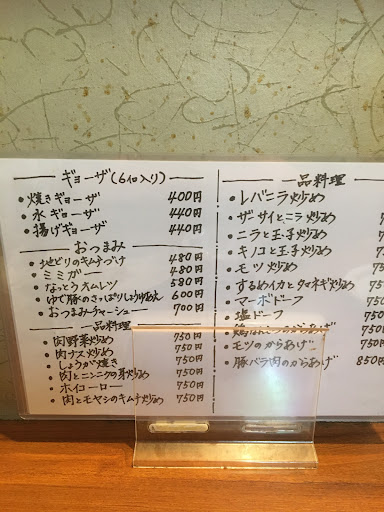 ギョーザ(6個入り)
・焼きギョーザ 400円
・水ギョーザ 440円
・揚げギョーザ 440円
おつまみ
・地どりのキムチづけ 480円
・ミミガー 480円
・なっとうオムレツ 580円
・ゆで豚のさっぱりしょうゆあえ 600円
・おつまみチャーシュー 700円
一品料理
・肉野菜炒め 750円
・肉ナス炒め 750円
・しょうが焼き 750円
・肉とニンニクの芽炒め 750円
・ホイコーロー 750円
・肉とモヤシのキムチ炒め 750円
一品料理
・レバニラ炒め
・ザーサイとニラ炒め
・ニラと玉子炒め
・キノコと玉子炒め
・モツ炒め
・するめイカとタマネギ炒め
・マーボドーフ
・塩ドーフ
のからあげ 750
・モツのからあげ 750
・豚バラ肉のからあげ 850円